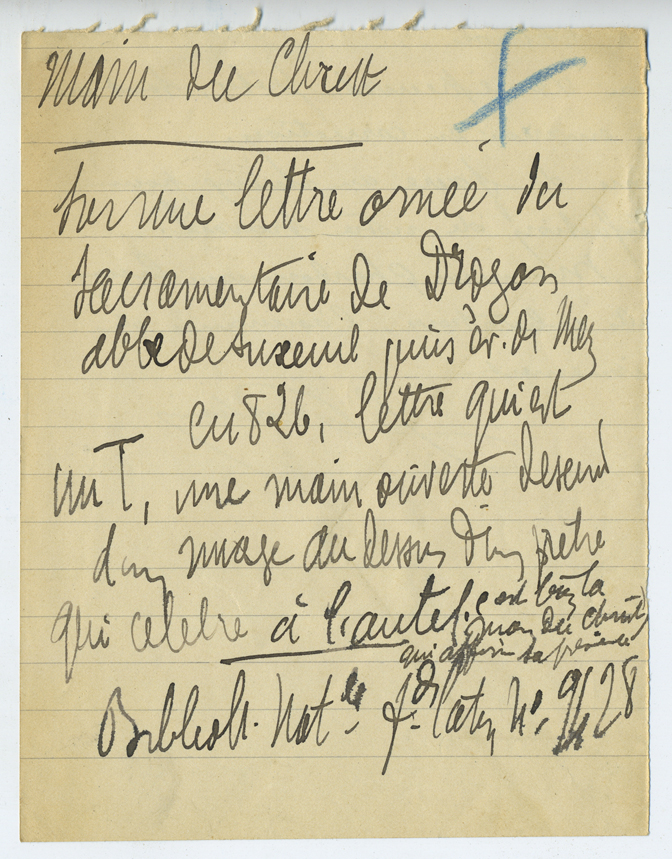 Main du Christ
sur une lettre ornée du
Sacramentaire de Drogon
abbé de Luxeuil puis év. de Metz
en 826, lettre qui est
un T, une main ouverte descend
d'un nuage au dessus d'un prêtre
qui célèbre à l'autel, c'est bien la
main du Christ
qui affirme sa présence
Biblioth. Natle fds latin, No. 9428